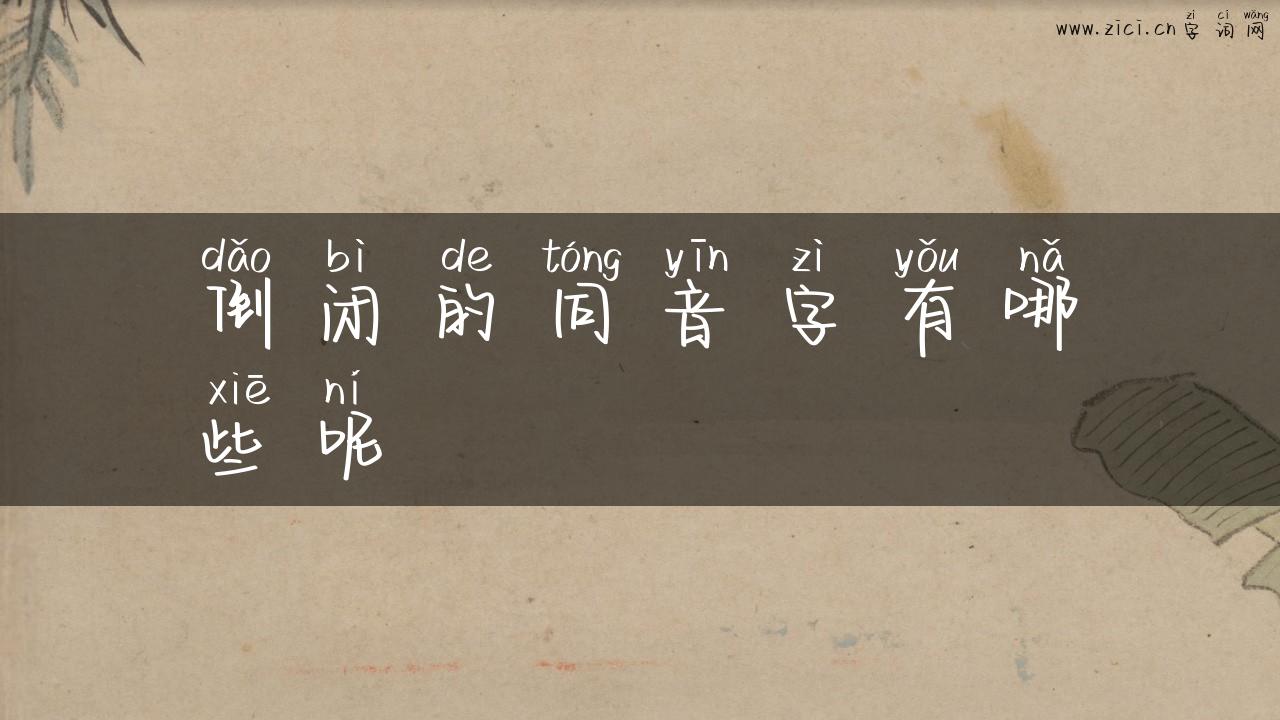 zì cí wǎng
www.zici.cn 字词网
dǎo bì de tóng yīn zì yǒu nǎ
倒闭的同音字有哪
xiē ní
些呢